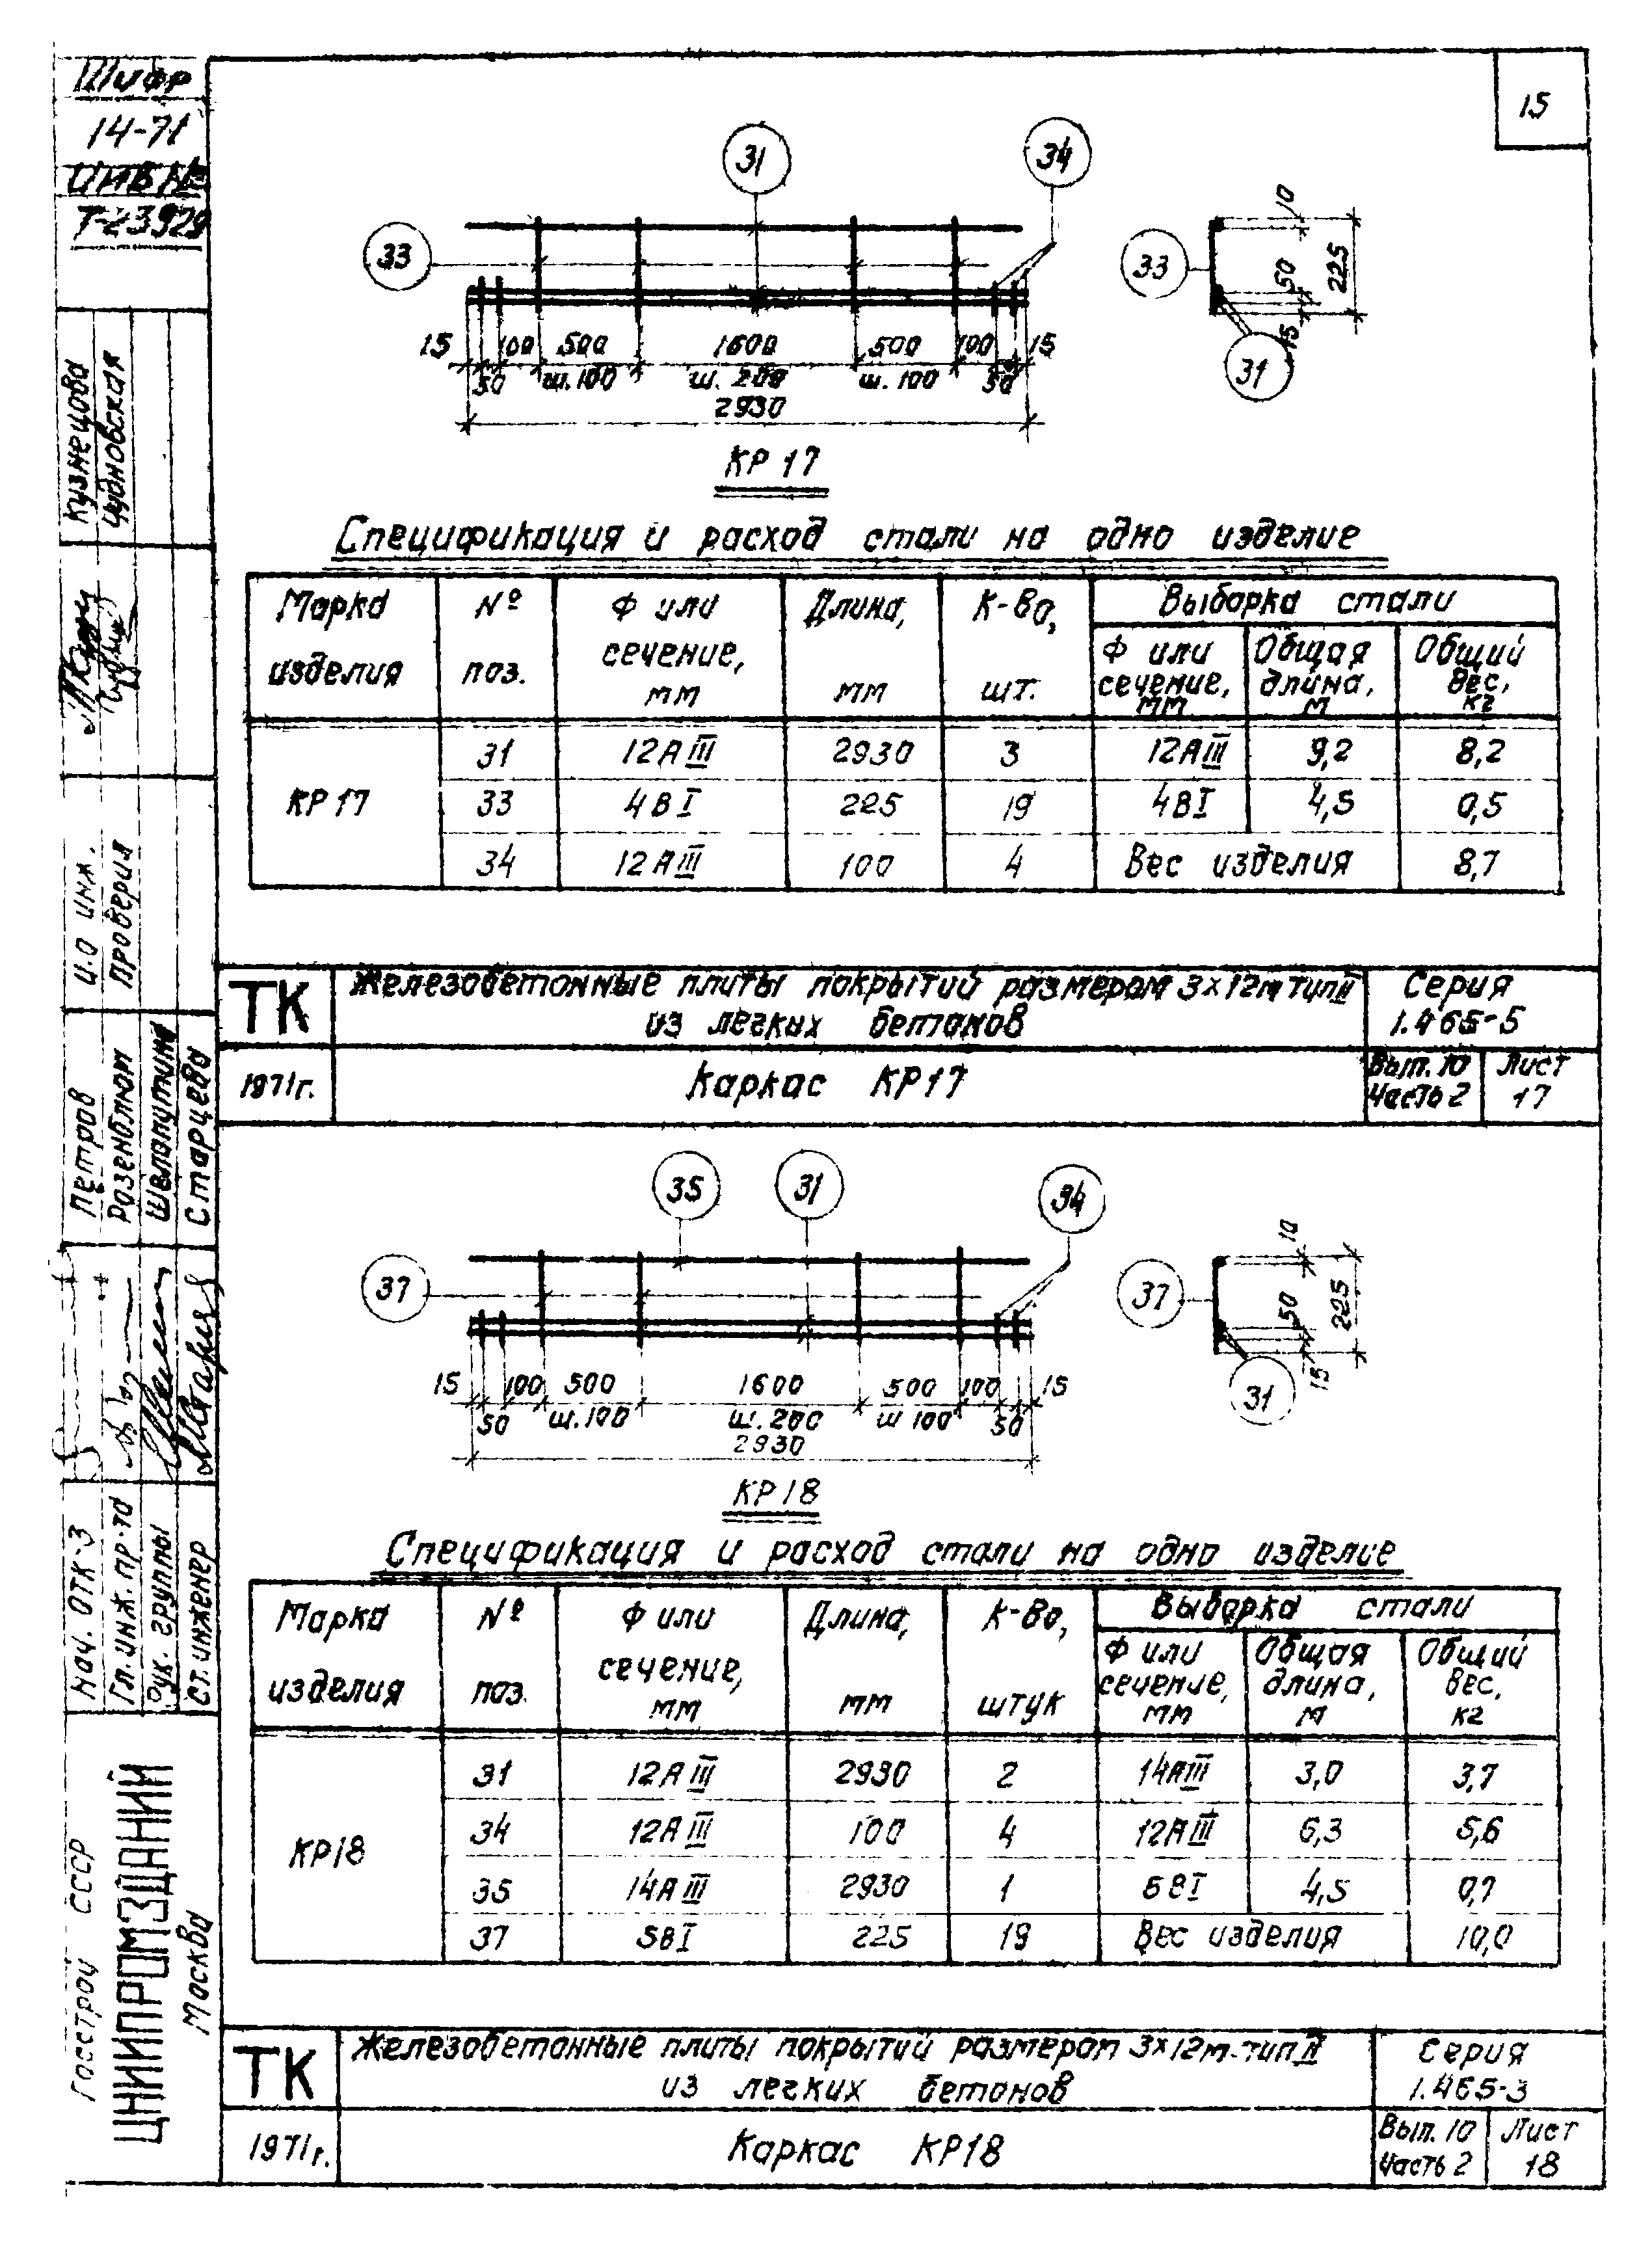 Шифр
14-71
ИНВ №
Т-23929
15
31
34
33
33
31
10
50
225
15
15 100 500 1600 500 100 15
50 ш.100 ш.200 ш.100 50
2930
КР 17
Спецификация и расход стали на одно изделие
Марка изделия | № поз. | Ф или сечение, мм | Длина, мм | К-во, шт. | Выборка стали
Ф или сечение, мм | Общая длина, м | Общий вес, кг
КР 17 | 31 | 12АIII | 2930 | 3 | 12АIII | 9,2 | 8,2
33 | 4ВI | 225 | 19 | 4ВI | 4,5 | 0,5
34 | 12АIII | 100 | 4 | Вес изделия | 8,7
ТК
Железобетонные плиты покрытий размером 3×12м тип II
из легких бетонов
Серия
1.465-5
1971г.
Каркас КР17
Вып. 10
Часть 2
Лист
17
35
31
34
37
37
31
10
50
225
15
15 100 500 1600 500 100 15
50 ш.100 ш.200 ш 100 50
2930
КР 18
Спецификация и расход стали на одно изделие
Марка изделия | № поз. | Ф или сечение, мм | Длина, мм | К-во, штук | Выборка стали
Ф или сечение, мм | Общая длина, м | Общий вес, кг
КР18 | 31 | 12АIII | 2930 | 2 | 14АIII | 3,0 | 3,7
34 | 12АIII | 100 | 4 | 12АIII | 6,3 | 5,6
35 | 14АIII | 2930 | 1 | 5ВI | 4,5 | 0,7
37 | 5ВI | 225 | 19 | Вес изделия | 10,0
ТК
Железобетонные плиты покрытий размером 3×12м-тип II
из легких бетонов
Серия
1.465-3
1971г.
Каркас КР18
Вып. 10
Часть 2
Лист
18
Кузнецова
Чудновская
И.О инж.
Проверил
Петров
Розенблюм
Швлопутина
Старцева
Нач. ОТК-3
Гл. инж. пр-та
Рук. группы
Ст. инженер
Госстрой СССР
ЦНИИПРОМЗДАНИЙ
Москва